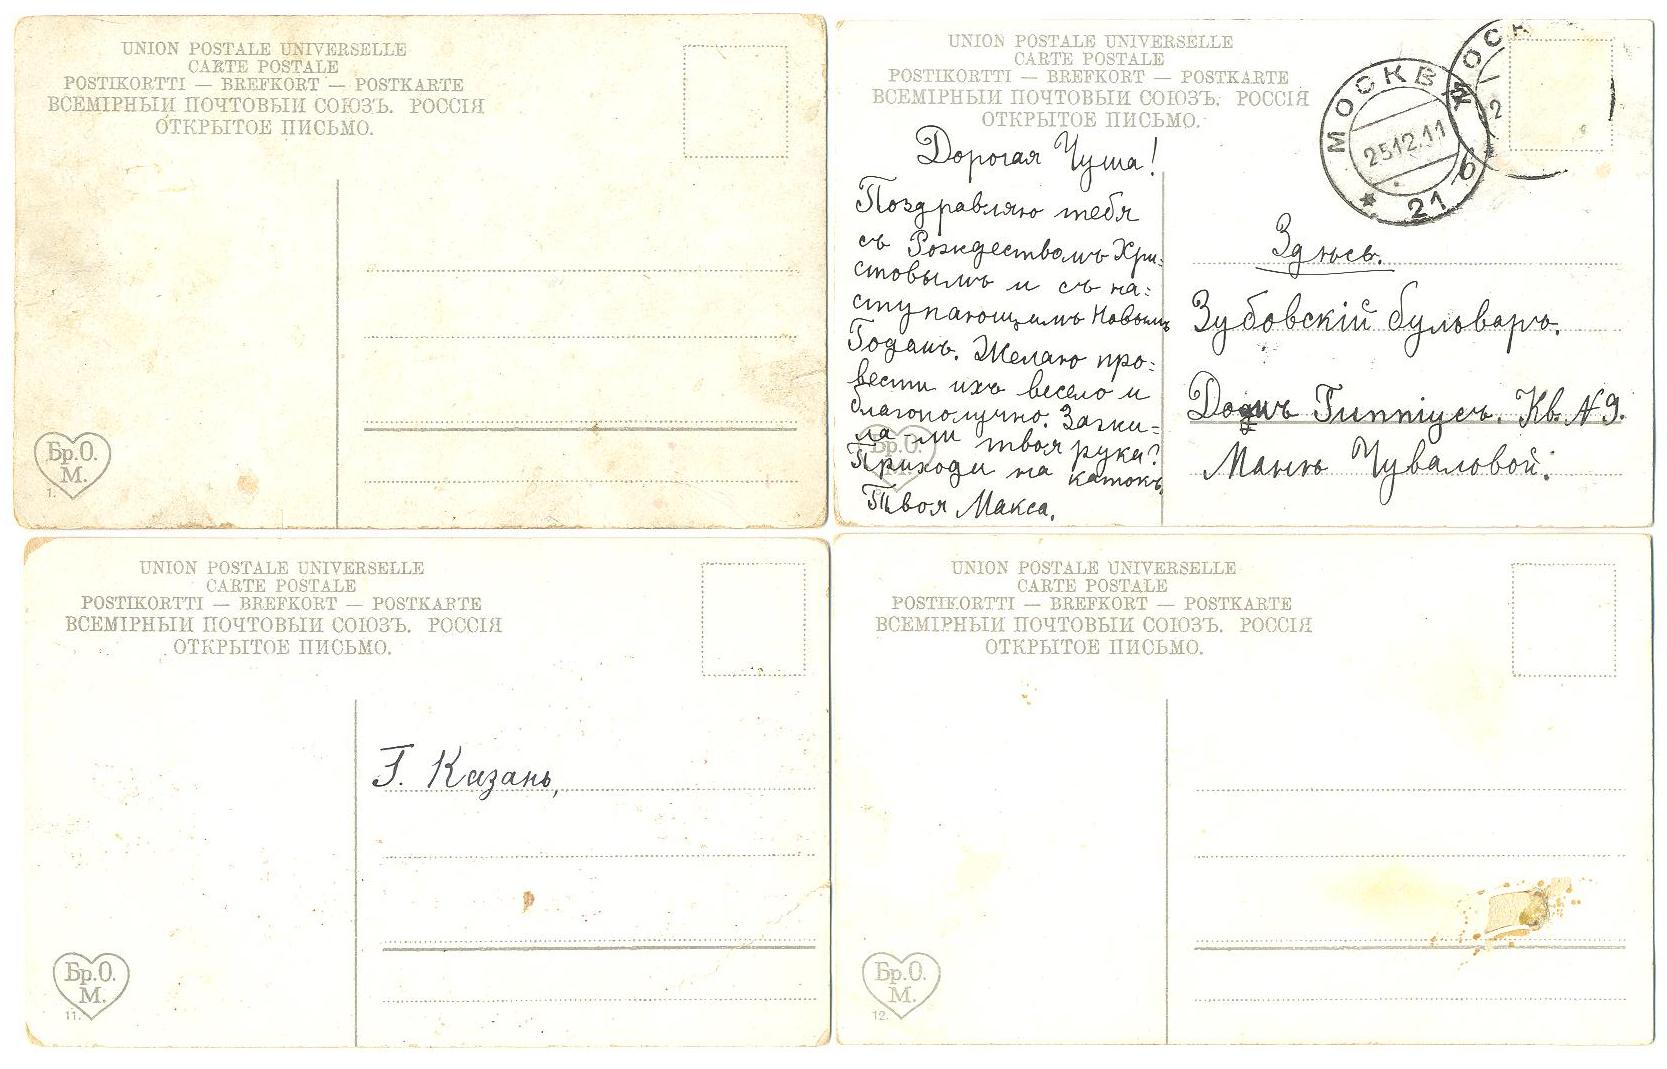 UNION POSTALE UNIVERSELLE
CARTE POSTALE
POSTIKORTTI — BREFKORT — POSTKARTE
ВСЕМІРНЫЙ ПОЧТОВЫЙ СОЮЗЪ. РОССІЯ
ОТКРЫТОЕ ПИСЬМО.
Бр.О.
М.
1.
UNION POSTALE UNIVERSELLE
CARTE POSTALE
POSTIKORTTI — BREFKORT — POSTKARTE
ВСЕМІРНЫЙ ПОЧТОВЫЙ СОЮЗЪ. РОССІЯ
ОТКРЫТОЕ ПИСЬМО.
МОСКВА
25.12.11
21
Дорогая Чуша!
Поздравляю тебя
съ Рождествомъ Хри-
стовымъ и съ на-
ступающимъ Новымъ
Годомъ. Желаю про-
вести ихъ весело и
благополучно. Зажи-
ла-ли твоя рука?
Приходи на катокъ.
Твоя Макса.
Здѣсь.
Зубовскій бульваръ.
Домъ Гиппіусъ. Кв. № 9.
Маню Чуваловой.
Бр.О.
М.
UNION POSTALE UNIVERSELLE
CARTE POSTALE
POSTIKORTTI — BREFKORT — POSTKARTE
ВСЕМІРНЫЙ ПОЧТОВЫЙ СОЮЗЪ. РОССІЯ
ОТКРЫТОЕ ПИСЬМО.
Г. Казань,
Бр.О.
М.
11.
UNION POSTALE UNIVERSELLE
CARTE POSTALE
POSTIKORTTI — BREFKORT — POSTKARTE
ВСЕМІРНЫЙ ПОЧТОВЫЙ СОЮЗЪ. РОССІЯ
ОТКРЫТОЕ ПИСЬМО.
Бр.О.
М.
12.